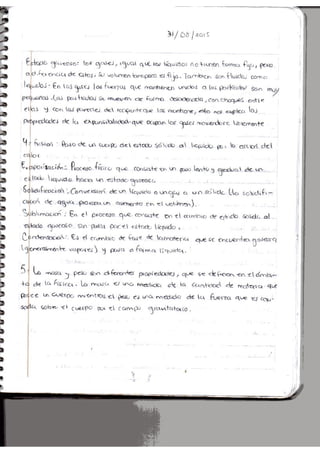 31/08/2015
Estado gaseoso: Los gases, igual que los líquidos no tienen forma fija, pero
a diferencia de estos, su volumen tampoco es fijo. También son fluidos como
líquidos. En los gases las fuerzas que mantienen unidas a las partículas son muy
pequeñas. Las partículas se mueven de forma desordenada, con choques entre
ellas y con las paredes del recipiente que los contiene, esto nos explica las
propiedades de la expansibilidad que ocupan los gases moviéndose libremente
4. Fusión: Paso de un cuerpo del estado sólido al líquido por la acción del
calor
Evaporización: Proceso físico que consiste en un paso lento y gradual de un
estado líquido hacia un estado gaseoso.
Solidificación: Conversión de un líquido o un gas a un sólido (la solidifi-
cación de agua provoca un aumento en el volumen).
Sublimación: Es el proceso que consiste en el cambio de estado sólido al
estado gaseoso sin pasar por el estado líquido.
Condensación: Es el cambio de fase de la materia que se encuentra gaseosa
(generalmente vapores) y pasa a forma líquida.
5. La masa y peso son diferentes propiedades, que se definen en el ámbi-
to de la física. La masa es una medida de la cantidad de materia que
posee un cuerpo mientras el peso es una medida de la fuerza que es cau-
sada sobre el cuerpo por el campo gravitatorio.